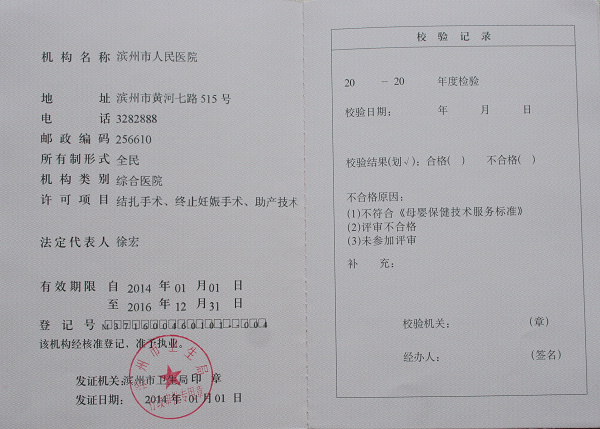 机构名称 滨州市人民医院
地址 滨州市黄河七路515号
电话 3282888
邮政编码 256610
所有制形式 全民
机构类别 综合医院
许可项目 结扎手术、终止妊娠手术、助产技术
法定代表人 徐宏
有效期限 自 2014 年 01 月 01 日
至 2016 年 12 月 31 日
登记号
该机构经核准登记、准予执业。
发证机关:滨州市卫生局 印 章
发证日期: 2014 年 01 月 01 日
滨州市卫生局
校验记录
20 －20 年度检验
校验日期: 年 月 日
校验结果(划√): 合格( ) 不合格( )
不合格原因:
(1)不符合《母婴保健技术服务标准》
(2)评审不合格
(3)未参加评审
补 充:
校验机关: (章)
经办人: (签名)